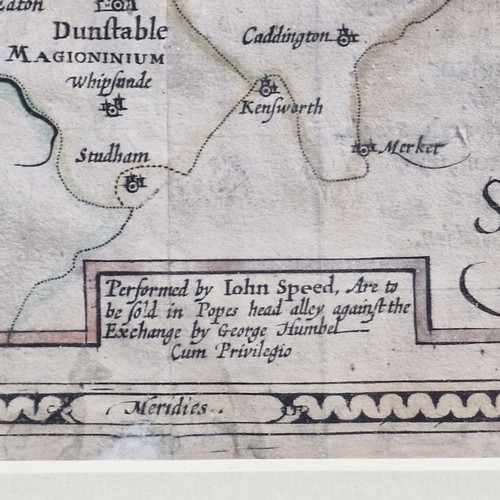 Eaton
Dunſtable
Caddington
MAGIONINIUM
Whipſnade
Kensworth
Studham
Merket
S
Performed by Iohn Speed, Are to
be ſold in Popes head alley againſt the
Exchange by George Humbel
Cum Privilegio
Meridies.